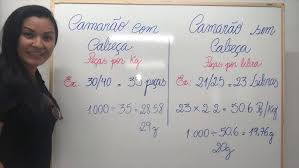 Camarão com
Cabeça
Peças por Kg
Ex: 30/40 = 35 peças
1000 ÷ 35 = 28.58
29g
Camarão sem
Cabeça
Peças por libra
Ex: 21/25 = 23
23 x 2.2 = 50.6 /Kg
1000 ÷ 50.6 = 19.76g
20g